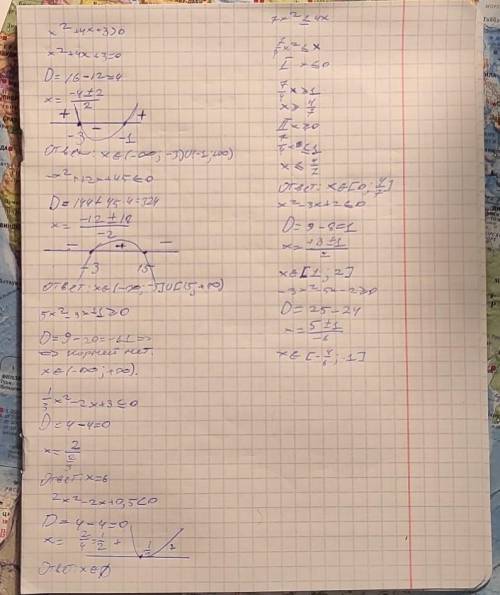 x²+4x+3>0
x²+4x+3=0
D=16-12=4
x= -4±2/2
+ - +
-3 -1
Ответ: x∈(-∞; -3)U(-1;+∞)
-x²+12x+45≤0
D=144+45·4=324
x= -12±18/-2
- + -
-3 15
Ответ: x∈(-∞;-3]U[15;+∞)
5x²-3x+1≥0
D=9-20=-11 =>
=> корней нет.
x∈(-∞;+∞).
1/3x²-2x+3≤0
D=4-4=0
x= 2/(2/3)
Ответ: x=6
2x²-2x+0,5<0
D=4-4=0
x= 2/4=1/2 +
1/2
Ответ: x∈∅
7x²≤4x
7/4x²≤x
I x≤0
7/4x≥1
x≥4/7
II x≥0
7/4x≤1
x≤4/7
Ответ: x∈[0;4/7]
x²-3x+2≤0
D=9-8=1
x= +3±1/2
x∈[1;2]
-3x²-5x-2≥0
D=25-24
x= 5±1/-6
x∈[-4/6;-1]